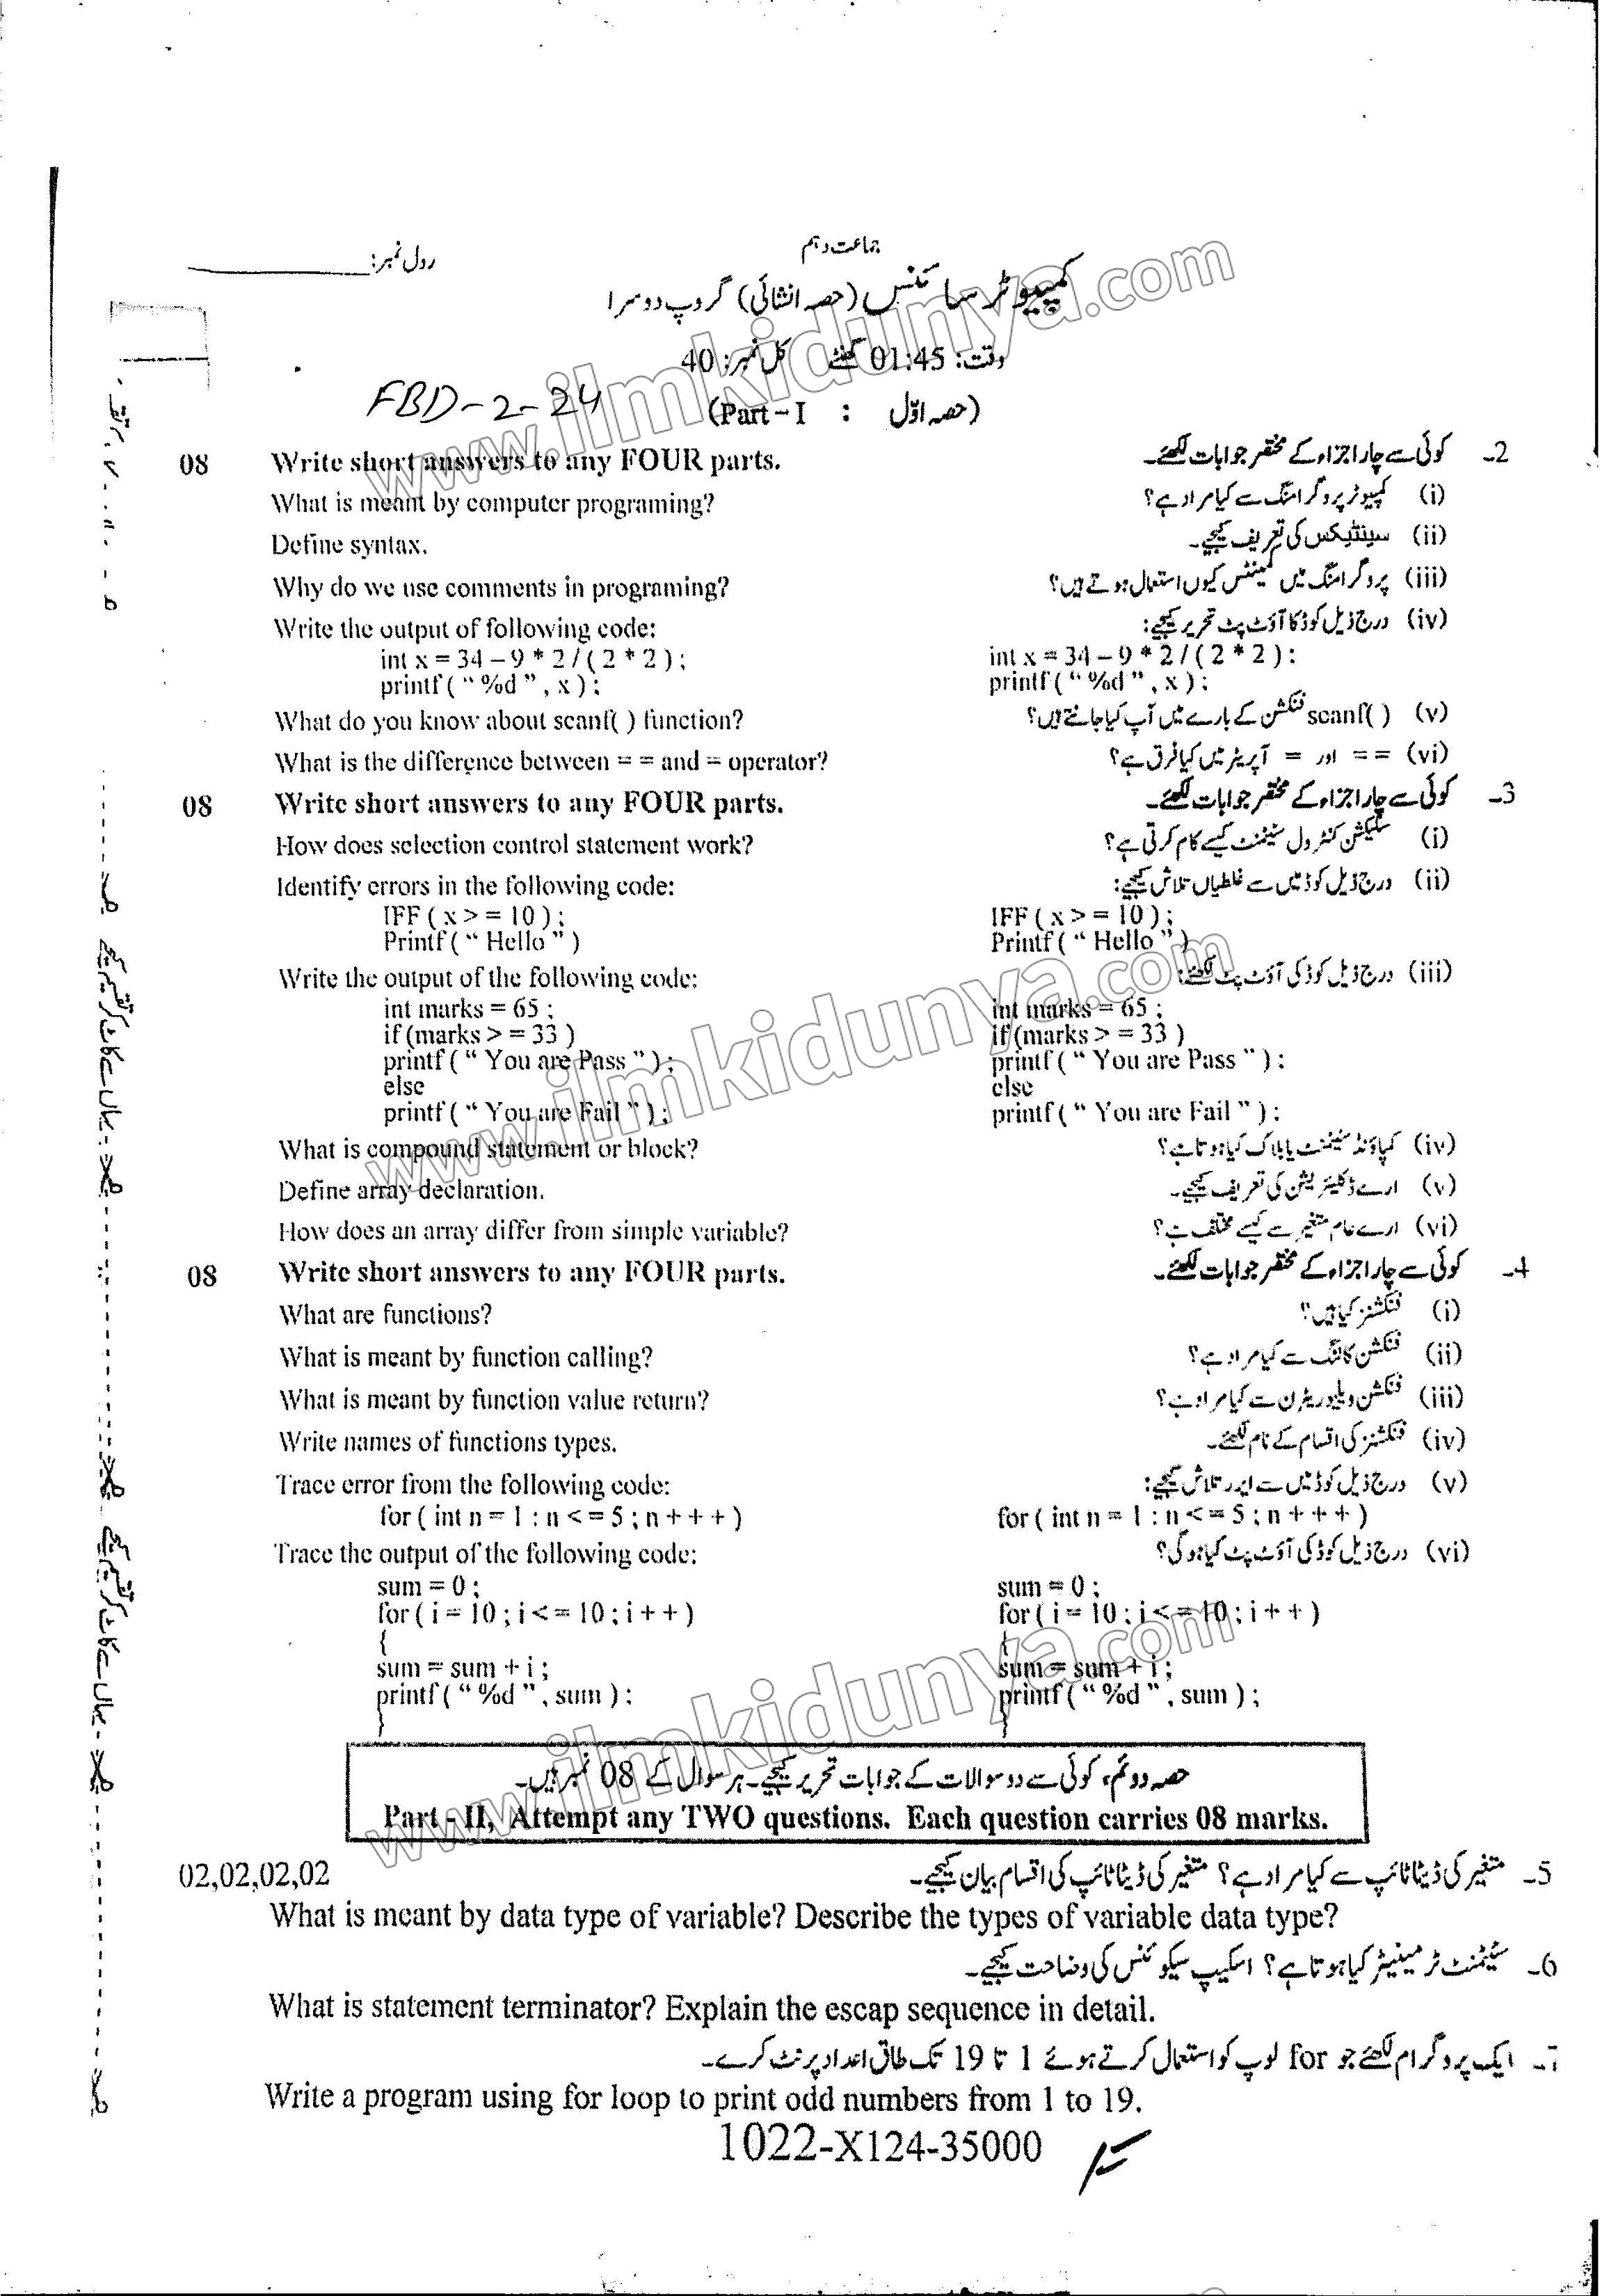 جماعت دہم
رول نمبر:
کمپیوٹر سائنس (حصہ انشائی) گروپ دوسرا
وقت: 01:45 گھنٹے کل نمبر: 40
FBD-2-24
(Part – I : حصہ اوّل)
08 Write short answers to any FOUR parts. 2۔ کوئی سے چار اجزاء کے مختصر جوابات لکھئے۔
What is meant by computer programing? (i) کمپیوٹر پروگرامنگ سے کیا مراد ہے؟
Define syntax. (ii) سینٹیکس کی تعریف کیجیے۔
Why do we use comments in programing? (iii) پروگرامنگ میں کمینٹس کیوں استعمال ہوتے ہیں؟
Write the output of following code: (iv) درج ذیل کوڈ کا آؤٹ پٹ تحریر کیجیے:
int x = 34 – 9 * 2 / ( 2 * 2 ) ; int x = 34 – 9 * 2 / ( 2 * 2 ) :
printf ( “ %d ” , x ) ; printf ( “ %d ” , x ) ;
What do you know about scanf( ) function? (v) scanf( ) فنکشن کے بارے میں آپ کیا جانتے ہیں؟
What is the difference between = = and = operator? (vi) = = اور = آپریٹر میں کیا فرق ہے؟
08 Write short answers to any FOUR parts. 3۔ کوئی سے چار اجزاء کے مختصر جوابات لکھئے۔
How does selection control statement work? (i) سلیکشن کنٹرول سٹیٹمنٹ کیسے کام کرتی ہے؟
Identify errors in the following code: (ii) درج ذیل کوڈ میں سے غلطیاں تلاش کیجیے:
IFF ( x > = 10 ) ; IFF ( x > = 10 ) ;
Printf ( “ Hello ” ) Printf ( “ Hello ” )
Write the output of the following code: (iii) درج ذیل کوڈ کی آؤٹ پٹ لکھئے:
int marks = 65 ; int marks = 65 ;
if (marks > = 33 ) if (marks > = 33 )
printf ( “ You are Pass ” ) ; printf ( “ You are Pass ” ) :
else else
printf ( “ You are Fail ” ) ; printf ( “ You are Fail ” ) ;
What is compound statement or block? (iv) کمپاؤنڈ سٹیٹمنٹ یا بلاک کیا ہوتا ہے؟
Define array declaration. (v) ارے ڈکلیئریشن کی تعریف کیجیے۔
How does an array differ from simple variable? (vi) ارے عام متغیر سے کیسے مختلف ہے؟
08 Write short answers to any FOUR parts. 4۔ کوئی سے چار اجزاء کے مختصر جوابات لکھئے۔
What are functions? (i) فنکشنز کیا ہیں؟
What is meant by function calling? (ii) فنکشن کالنگ سے کیا مراد ہے؟
What is meant by function value return? (iii) فنکشن ویلیو ریٹرن سے کیا مراد ہے؟
Write names of functions types. (iv) فنکشنز کی اقسام کے نام لکھئے۔
Trace error from the following code: (v) درج ذیل کوڈ میں سے ایرر تلاش کیجیے:
for ( int n = 1 : n < = 5 ; n + + + ) for ( int n = 1 : n < = 5 ; n + + + )
Trace the output of the following code: (vi) درج ذیل کوڈ کی آؤٹ پٹ کیا ہو گی؟
sum = 0 ; sum = 0 ;
for ( i = 10 ; i < = 10 ; i + + ) for ( i = 10 ; i < = 10 ; i + + )
{ {
sum = sum + i ; sum = sum + i ;
printf ( “ %d ” , sum ) ; printf ( “ %d ” , sum ) ;
} }
حصہ دوئم، کوئی سے دو سوالات کے جوابات تحریر کیجیے۔ ہر سوال کے 08 نمبر ہیں۔
Part – II, Attempt any TWO questions. Each question carries 08 marks.
02,02,02,02 5۔ متغیر کی ڈیٹا ٹائپ سے کیا مراد ہے؟ متغیر کی ڈیٹا ٹائپ کی اقسام بیان کیجیے۔
What is meant by data type of variable? Describe the types of variable data type?
6۔ سٹیٹمنٹ ٹرمینیٹر کیا ہوتا ہے؟ اسکیپ سیکوئنس کی وضاحت کیجیے۔
What is statement terminator? Explain the escap sequence in detail.
7۔ ایک پروگرام لکھئے جو for لوپ کو استعمال کرتے ہوئے 1 تا 19 تک طاق اعداد پرنٹ کرے۔
Write a program using for loop to print odd numbers from 1 to 19.
1022-X124-35000
یہاں سے کاٹ کر تقسیم کیجیے
یہاں سے کاٹ کر تقسیم کیجیے
www.ilmkidunya.com
www.ilmkidunya.com
www.ilmkidunya.com